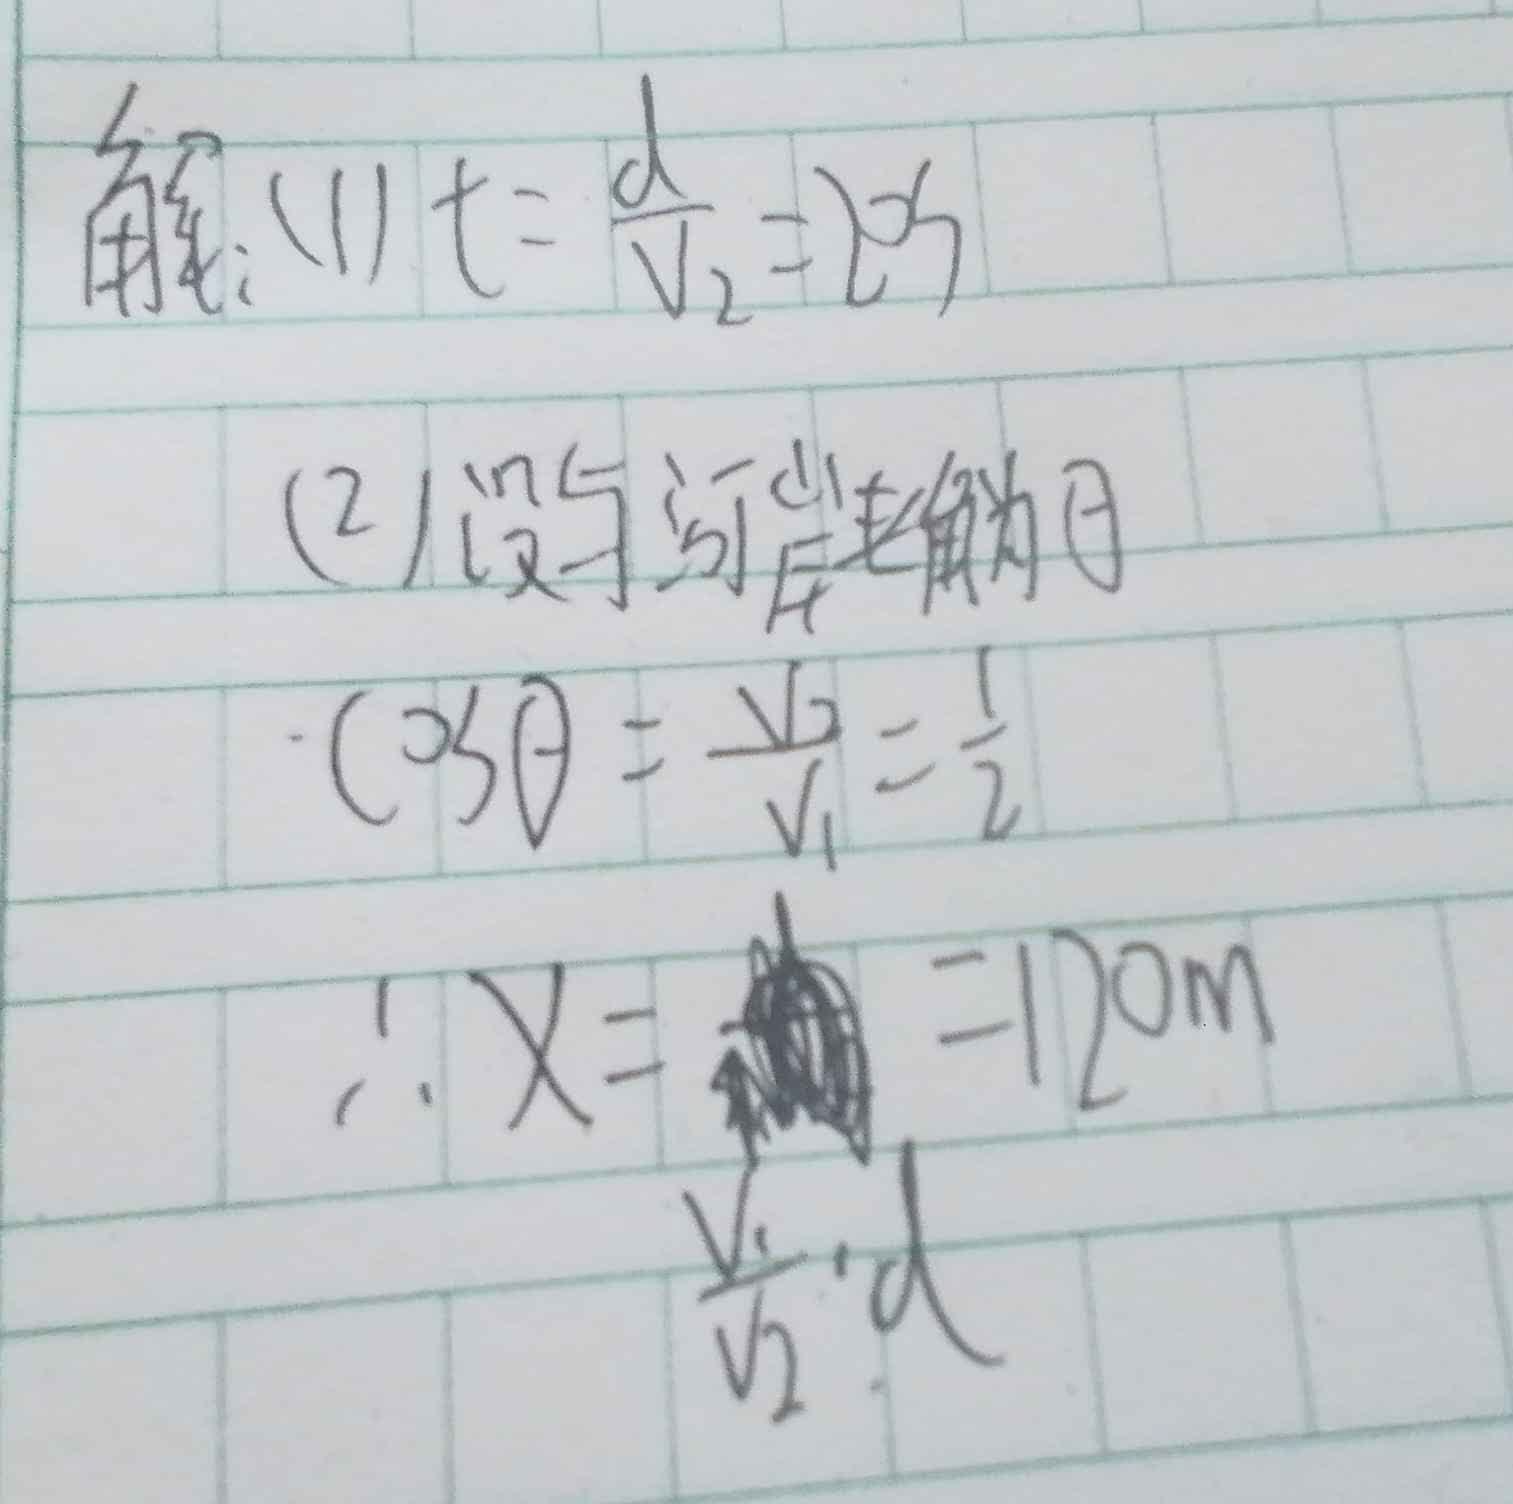 解:(1) t = d/V₂ = 20s
(2) 设与河岸夹角为θ
cosθ = V₂/V₁ = 1/2
∴ X = = 120m
V₁/V₂ · d